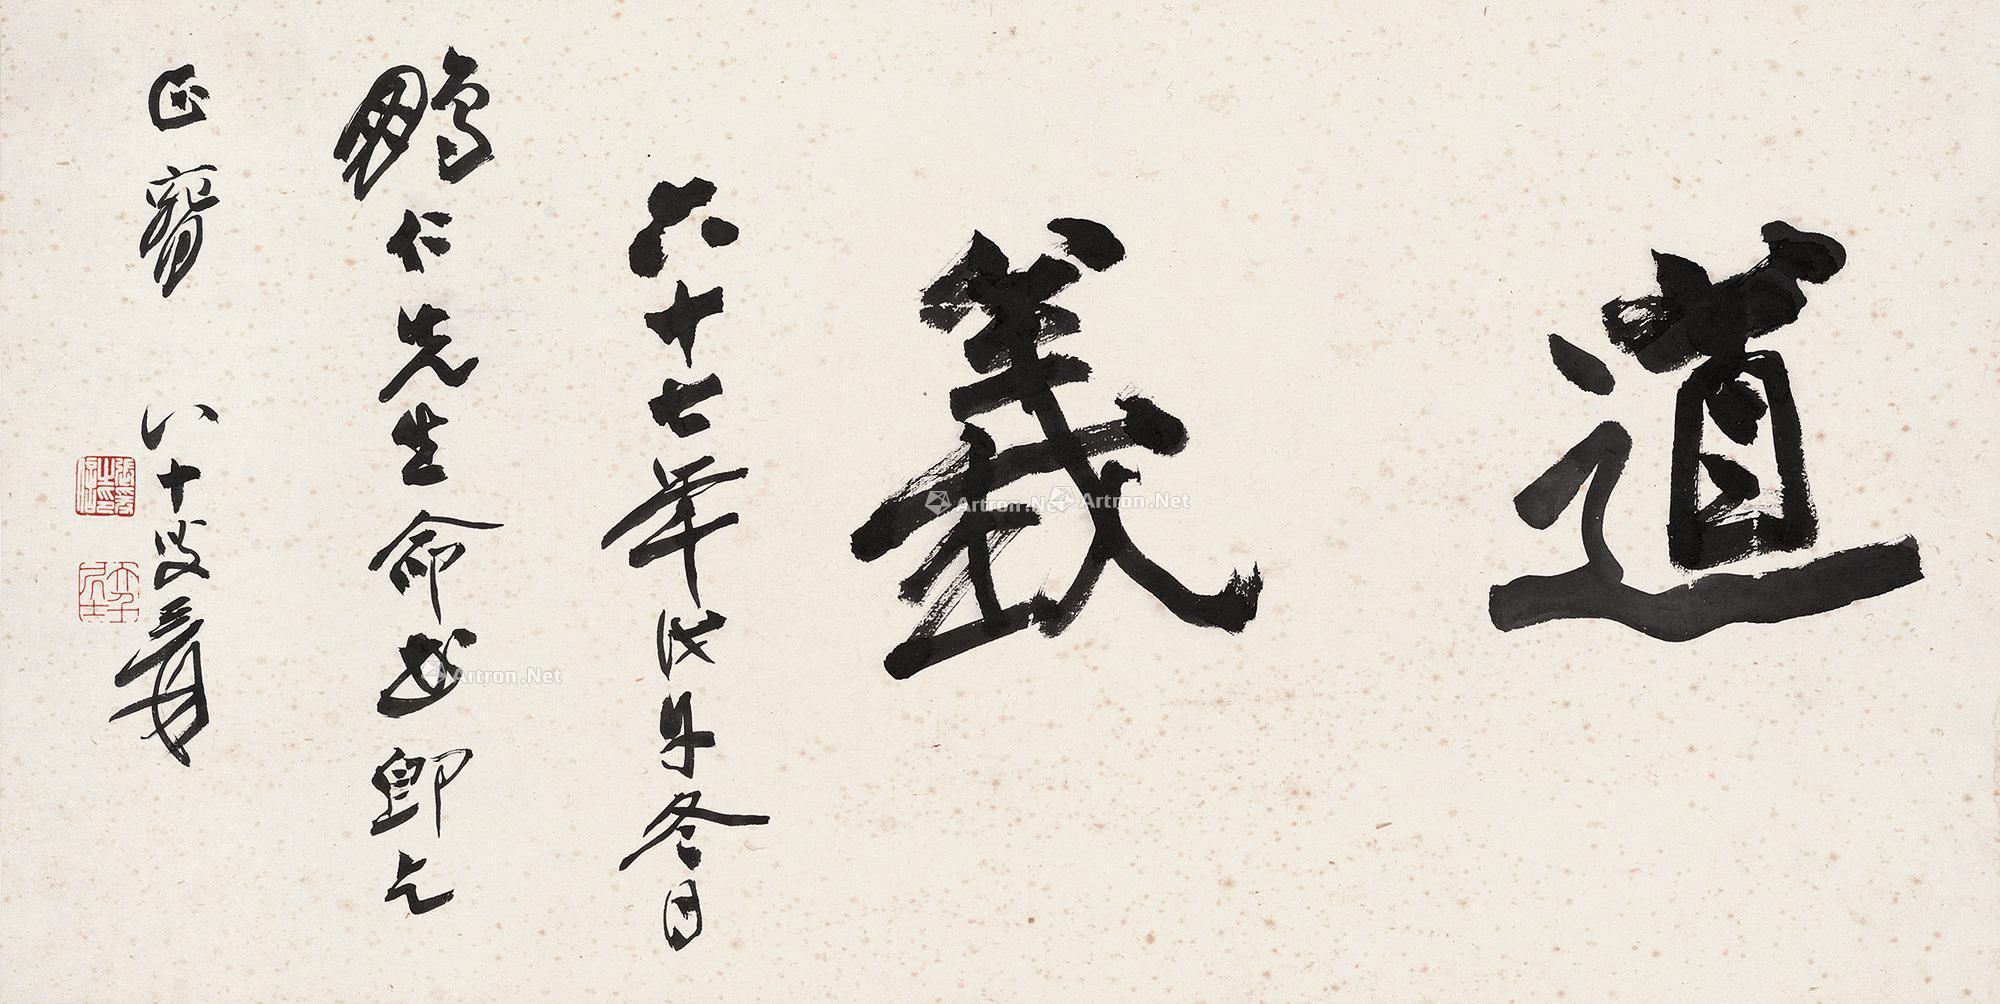 道義
六十七年戊午冬日
鵬仁先生命書即乞
正腕 八十叟爰
張爰之印信
大千居士
Artron.Net
Artron.Net
Artron.Net